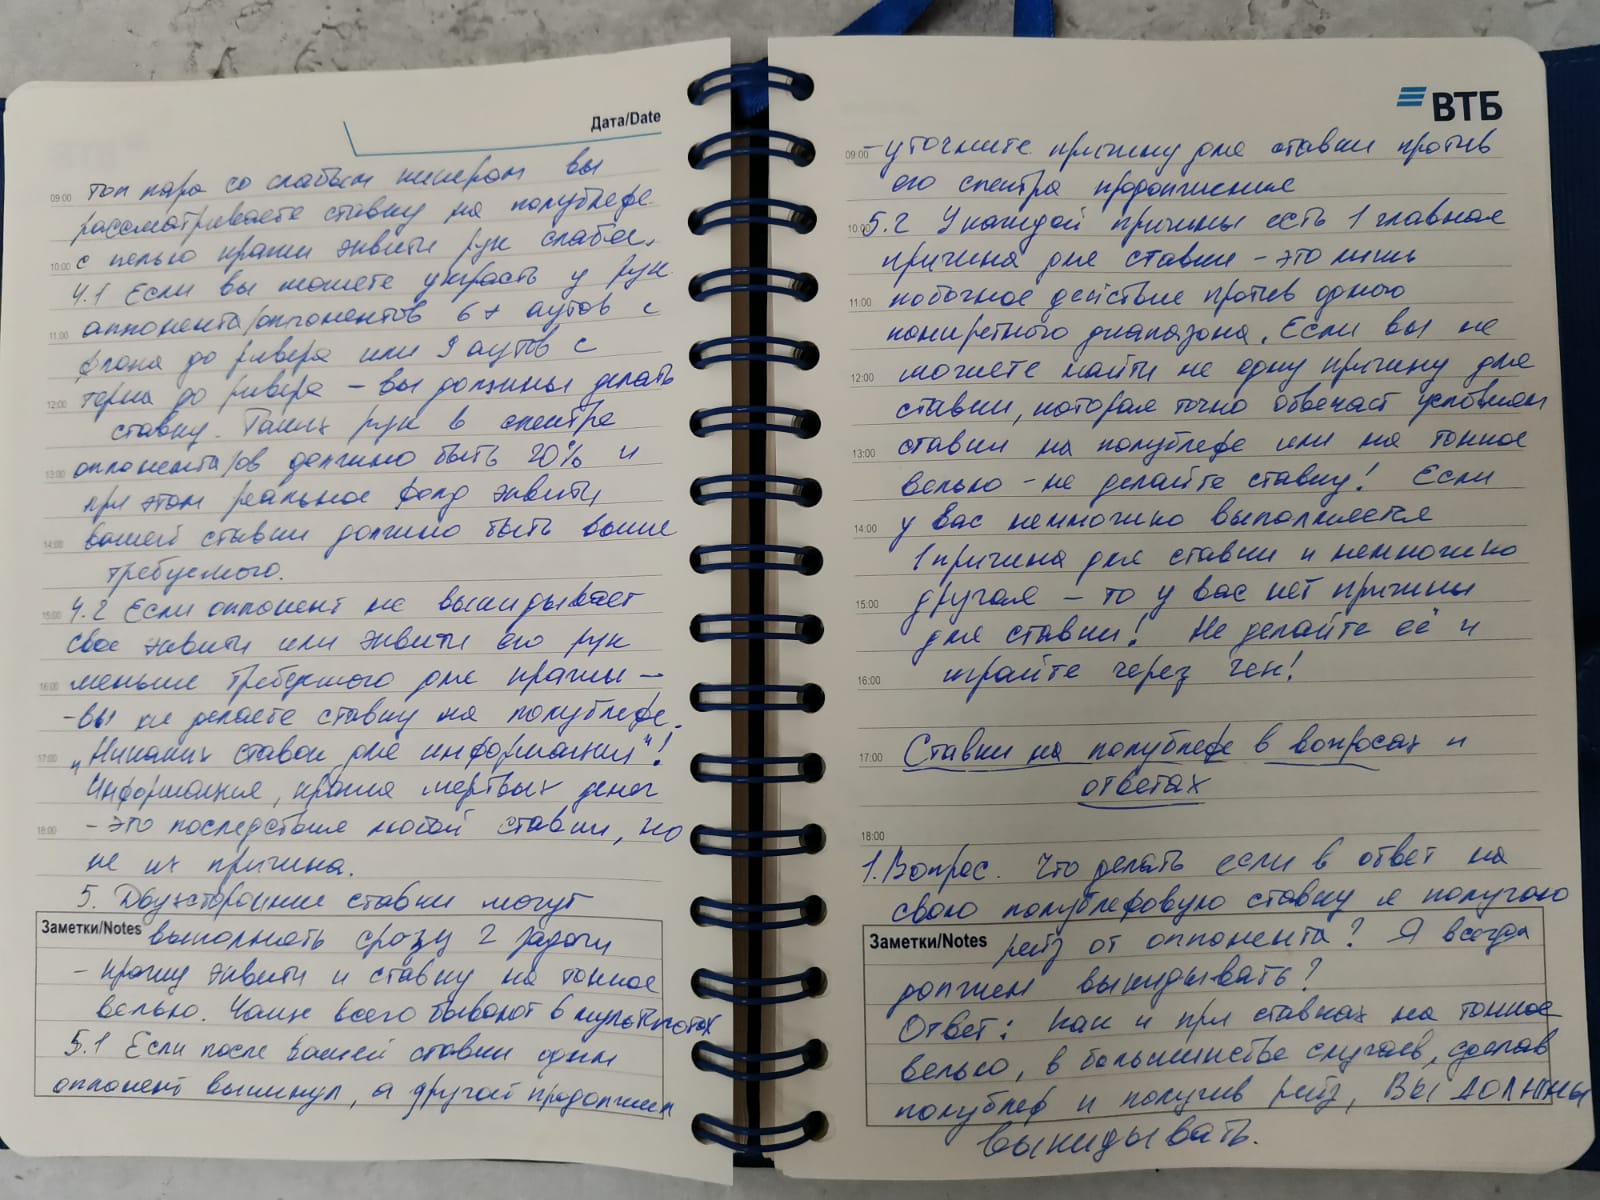 Дата/Date
09:00 топ пара со слабым кикером вы
рассматриваете ставку на полублефе
10:00 с целью кражи эквити рук слабее.
4.1 Если вы можете украсть у рук
11:00 аппонента/оппонентов 6+ аутов с
флопа до ривера или 9 аутов с
12:00 терна до ривера – вы должны делать
ставку. Таких рук в спектре
13:00 оппонента/ов должно быть 20% и
при этом реальное фолд эквити
14:00 вашей ставки должно быть выше
требуемого.
15:00 4.2 Если оппонент не выкидывает
свое эквити или эквити его рук
16:00 меньше требуемого для кражи –
- вы не делаете ставку на полублефе.
17:00 „Никаких ставок для информации"!
Информация, кража мертвых денег
18:00 - это последствия любой ставки, но
не их причина.
5. Двухсторонние ставки могут
Заметки/Notes выполнять сразу 2 задачи
- кражу эквити и ставку на тонкое
велью. Чаще всего бывают в мультипотах
5.1 Если после вашей ставки один
оппонент выкинул, а другой продолжил
ВТБ
09:00 - уточните причину для ставки против
его спектра продолжения
10:00 5.2 У каждой причины есть 1 главная
причина для ставки – это лишь
11:00 побочное действие против одного
конкретного диапазона. Если вы не
12:00 можете найти не одну причину для
ставки, которая точно отвечает условиям
13:00 ставки на полублефе или на тонкое
велью - не делайте ставку! Если
14:00 у вас немножко выполняется
1 причина для ставки и немножко
15:00 другая – то у вас нет причины
для ставки! Не делайте её и
16:00 играйте через чек!
17:00 Ставки на полублефе в вопросах и
ответах
18:00
1. Вопрос. Что делать если в ответ на
свою полублефовую ставку я получаю
Заметки/Notes рейз от оппонента? Я всегда
должен выкидывать?
Ответ: Как и при ставках на тонкое
велью, в большинстве случаев, сделав
полублеф и получив рейз, ВЫ ДОЛЖНЫ
выкидывать.